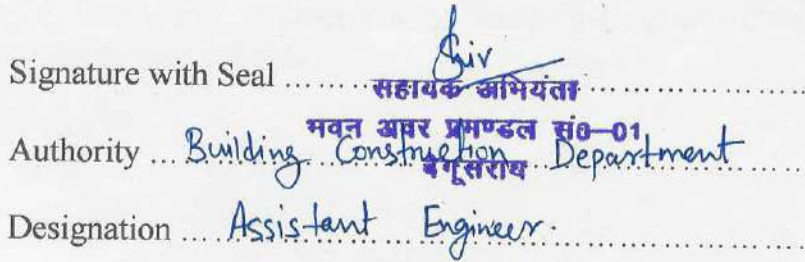 Signature with Seal ........ Shiv
सहायक अभियंता
भवन अवर प्रमण्डल सं०-01
Authority ... Building Construction Department
बेगूसराय
Designation .... Assistant Engineer.